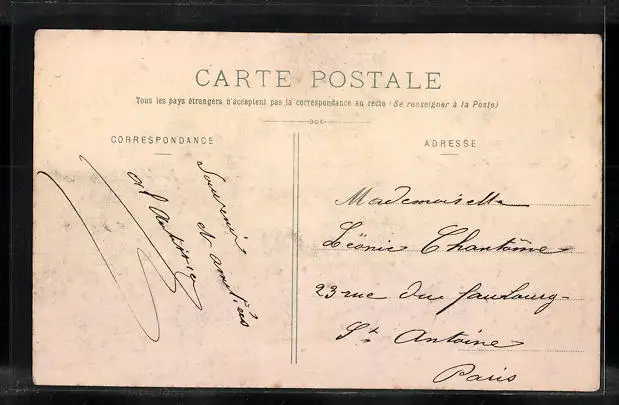 CARTE POSTALE
Tous les pays étrangers n'acceptent pas la correspondance au recto (Se renseigner à la Poste)
CORRESPONDANCE
Souvenir
et amitiés
ADRESSE
Mademoiselle
Léonie Chantôme
23 rue du faubourg-
St Antoine
Paris